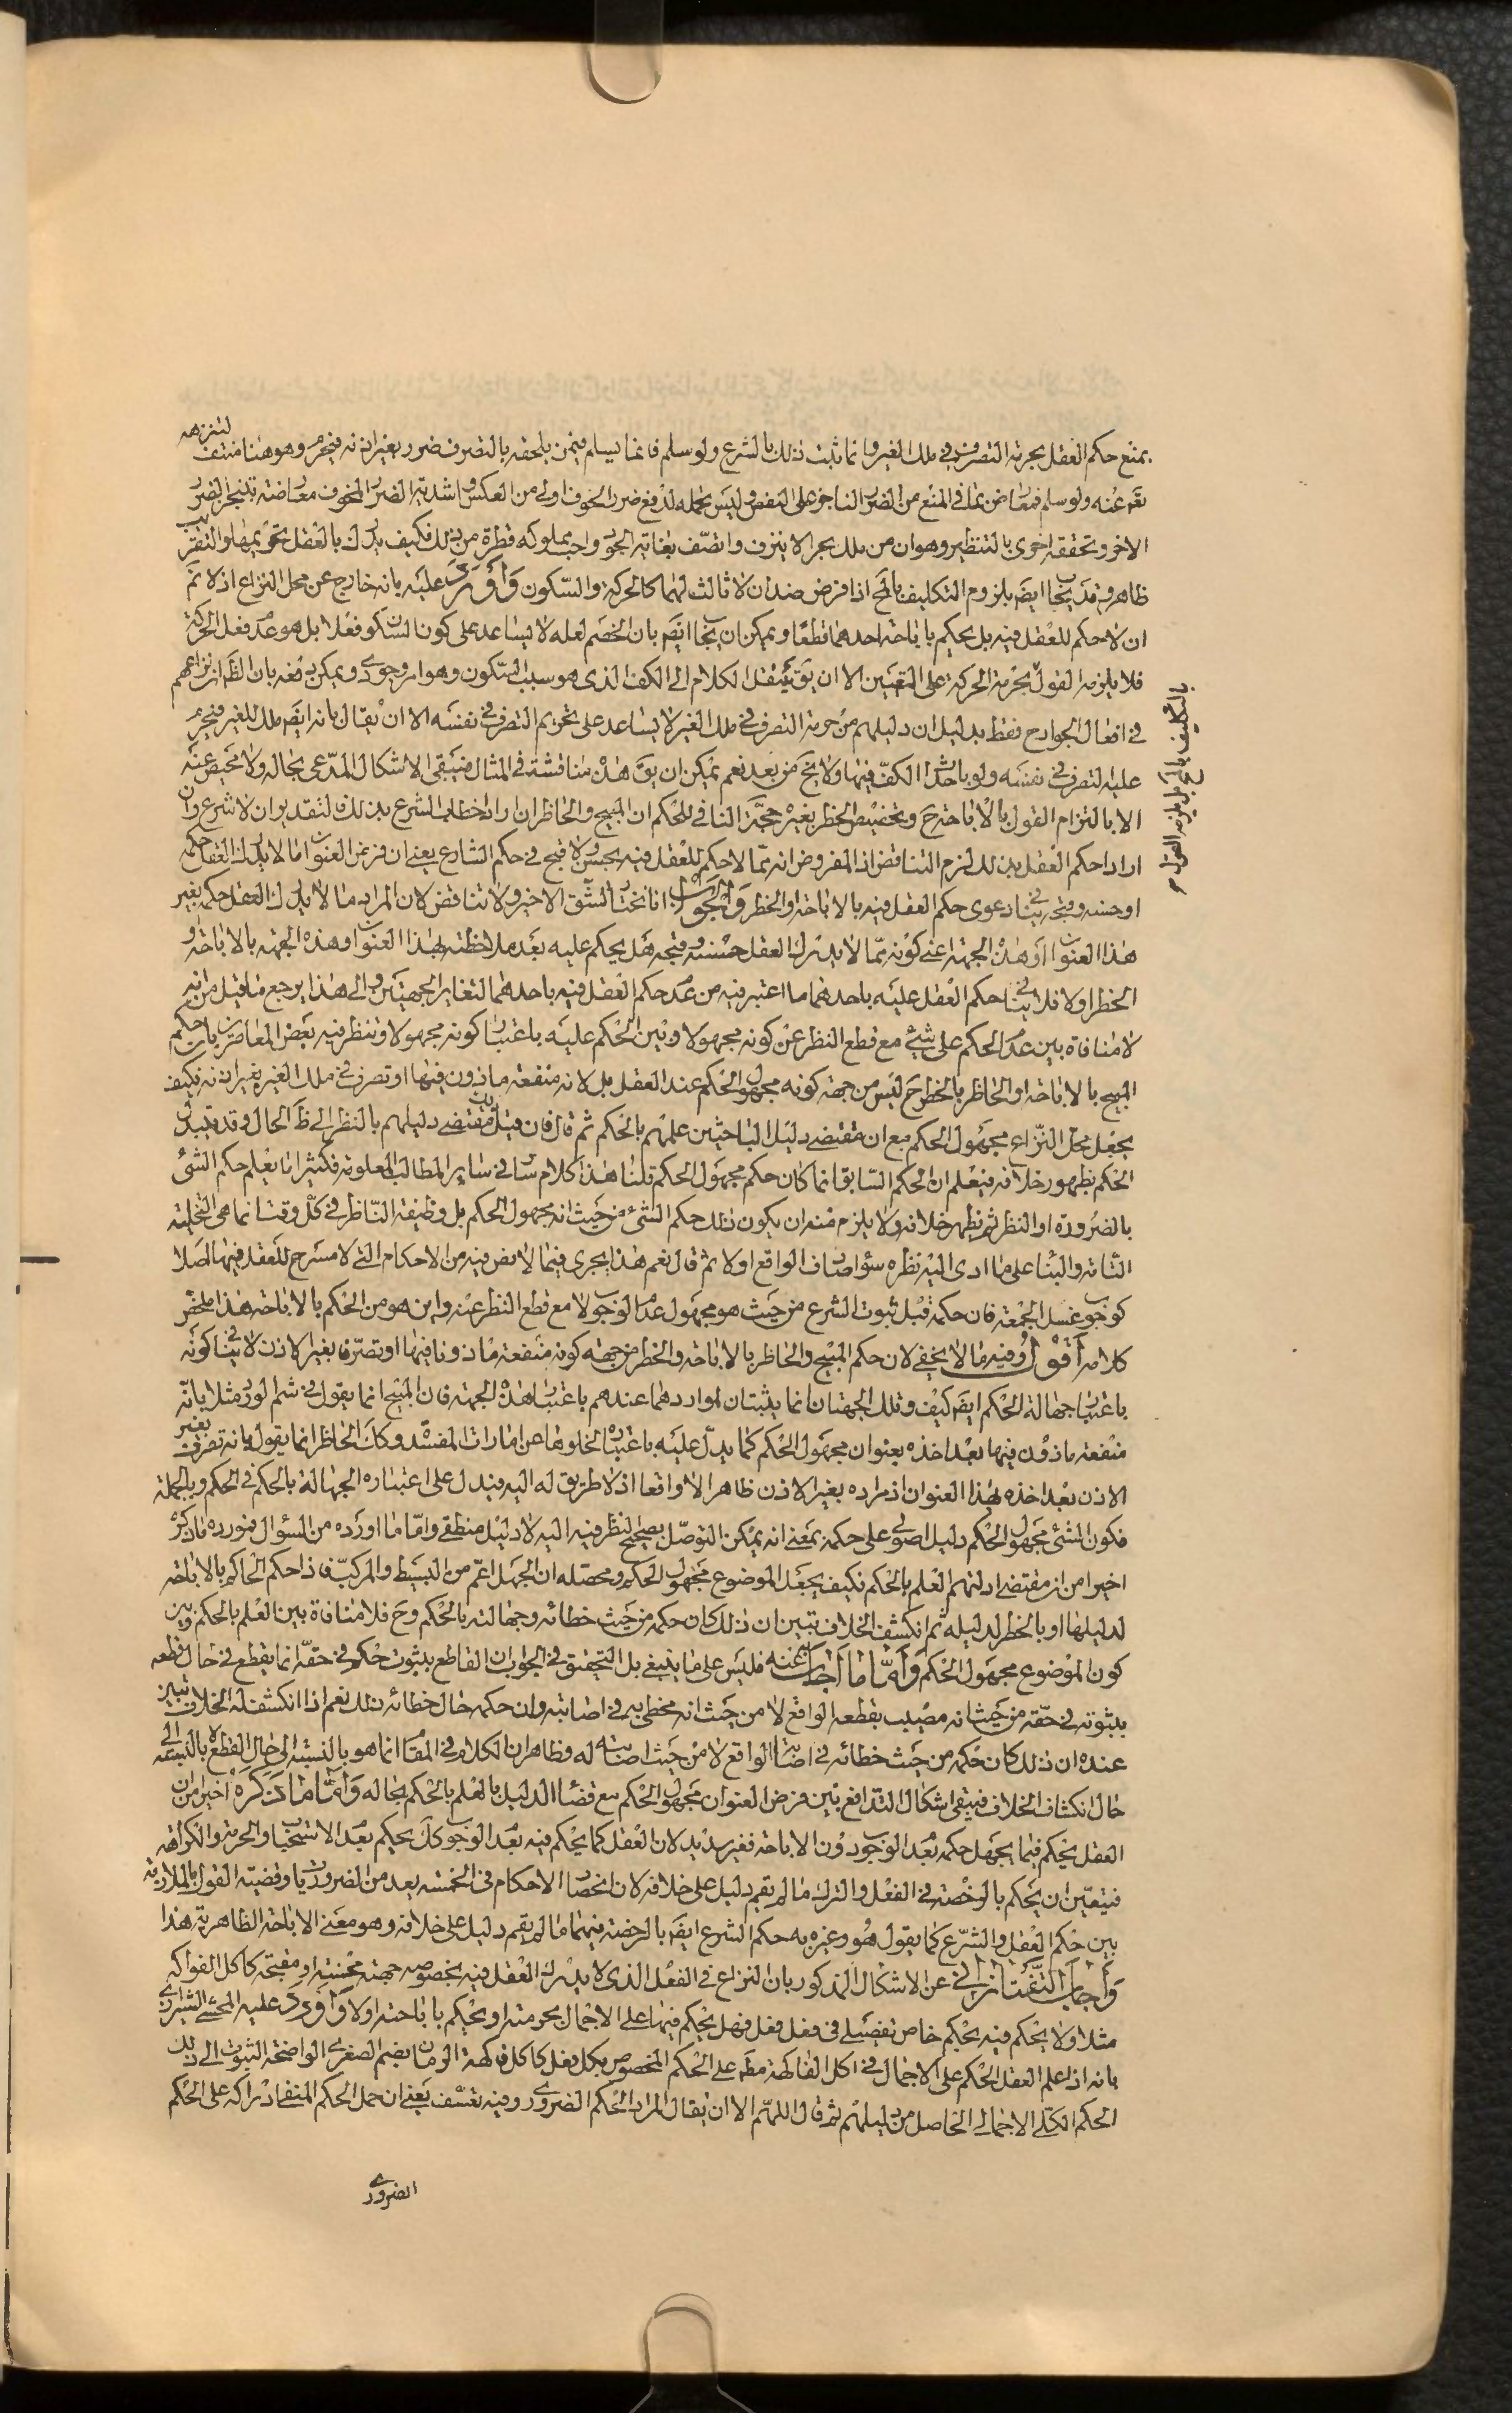 بمنع حكم العقل بحرمة التصرف في ملك الغير وانما ثبت ذلك بالشرع ولو سلم فانما يسلم فيمن يلحقه بالتصرف ضرر بغير اذنه فيحرم وهو هنا منتف لتنزهه
تعَ عنه ولو سلم فمعارض بما في المنع من الضرر الناجز على النفس وليس تحمله لدفع ضرر الخوف اولى من العكس واشدية الضرر المخوف معارضة بتنجز الضرر
الاخر وتحققه اخرى بالتنظير وهو ان من ملك بحرا لا ينزف واتصف بغاية الجود واحب مملوكه قطرة من ذلك فكيف يدرك بالعقل تحريمها والتقريب
ظاهر وقد يجاب ايضَ بلزوم التكليف بالمحَ اذا فرض ضدان لا ثالث لهما كالحركة والسكون وَاُورِدَ عليه بانه خارج عن محل النزاع اذ لا نمَ
ان لا حكم للعقل فيه بل يحكم باباحة احدهما قطعا ويمكن ان يجاب ايضَ بان الخصم لعله لا يساعد على كون السكون فعلا بل هو عدم فعل الحركة
فلا يلزمه القول بحرمة الحركة على التعيين الا ان يقَ ينتقل الكلام الى الكف الذى هو سبب السكون وهو امر وجودى ويمكن دفعه بان الظَ ان نزاعهم
في افعال الجوارح فقط بدليل ان دليلهم من حرمة التصرف في ملك الغير لا يساعد على تحريم التصرف في نفسه الا ان يقال بانه ايضَ ملك للغير فيحرم
عليه التصرف في نفسه ولو باحداث الكف فيها ولا يخَ من بعد نعم يمكن ان يقَ هذه مناقشة في المثال فيبقى الاشكال المدعى بحاله ولا محيص عنه
الا بالتزام القول بالاباحة حَ وتخصيص الحظر بغيره حجة النافي للحكم ان المبيح والحاظر ان ارادا خطاب الشرع بذلك فالتقدير ان لا شرع وان
ارادا حكم العقل بذلك لزم التناقض اذ المفروض انه مما لا حكم للعقل فيه بحسن ولا قبح في حكم الشارع يعنى ان فرض العنوان ما لا يدرك العقل حكمه
او حسنه وقبحه ينافي دعوى حكم العقل فيه بالاباحة او الحظر وَالجَوابُ انا نختار الشق الاخير ولا تناقض لان المراد به ما لا يدرك العقل حكمه بغير
هذا العنوان او هذه الجهة اعنى كونه مما لا يدرك العقل حسنه وقبحه هل يحكم عليه بعد ملاحظته بهذا العنوان وهذه الجهة بالاباحة او
الحظر اولا فلا ينافي حكم العقل عليه باحدهما ما اعتبر فيه من عدم حكم العقل فيه باحدهما لتغاير الجهتين والى هذا يرجع ما قيل من انه
لا منافاة بين عدم الحكم على شيء مع قطع النظر عن كونه مجهولا وبين الحكم عليه باعتبار كونه مجهولا وتنظر فيه بعض المعاصرين بان حكم
المبيح بالاباحة او الحاظر بالحظر حَ ليس من جهة كونه مجهول الحكم عند العقل بل لانه منفعة ماذون فيها او تصرف في ملك الغير بغير اذنه فكيف
يجعل محل النزاع مجهول الحكم مع ان مقتضى دليل الباحثين علمهم بالحكم ثم قال فان قيل مقتضى دليلهم بالنظر الى ظَ الحال وقد يتبدل
الحكم بظهور خلافه فيعلم ان الحكم السابق انما كان حكم مجهول الحكم قلنا هذا كلام سار في ساير المطالب المعلومة فكثيرا ما يعلم حكم الشئ
بالضرورة او النظر ثم يظهر خلافه ولا يلزم منه ان يكون ذلك حكم الشئ من حيث انه مجهول الحكم بل وظيفة الناظر في كل وقت انما هى التخلية
التامة والبناء على ما ادى اليه نظره سواء صادف الواقع اولا ثم قال نعم هذا يجرى فيما لا نص فيه من الاحكام التى لا مسرح للعقل فيها اصلا
كوجوب غسل الجمعة فان حكمه قبل ثبوت الشرع من حيث هو مجهول عدم الوجوب لا مع قطع النظر عنه واين هو من الحكم بالاباحة هذا ملخص
كلامه اَقُولُ وفيه ما لا يخفى لان حكم المبيح والحاظر بالاباحة والحظر من جهة كونه منفعة ماذونا فيها او تصرفا بغير الاذن لا ينافي كونه
باعتبار جهالة الحكم ايضَ كيف وتلك الجهتان انما يثبتان لمواردهما عندهم باعتبار هذه الجهة فان المبيح انما يقول في شم الورد مثلا بانه
منفعة ماذون فيها بعد اخذه بعنوان مجهول الحكم كما يدل عليه باعتباره لخلوها عن امارات المفسدة وكك الحاظر انما يقول بانه تصرف بغير
الاذن بعد اخذه لهذا العنوان اذ مراده بغير الاذن ظاهرا لا واقعا اذ لا طريق له اليه فيدل على اعتباره الجهالة بالحكم في الحكم وبالجملة
فكون الشئ مجهول الحكم دليل اصولى على حكمه بمعنى انه يمكن التوصل بصحيح النظر فيه اليه لا دليل منطقى وامّا ما اورده من السؤال فمورده ما ذكره
اخيرا من ان مقتضى ادلتهم العلم بالحكم فكيف يجعل الموضوع مجهول الحكم ومحصله ان الجهل اعم من البسيط والمركب فاذا حكم الحاكم بالاباحة
لدليلها او بالحظر لدليله ثم انكشف الخلاف تبين ان ذلك كان حكمه من حيث خطائه وجهالته بالحكم وحَ فلا منافاة بين العلم بالحكم وبين
كون الموضوع مجهول الحكم وَاَمّا ما اَجابَ عنه فليس على ما ينبغى بل التحقيق في الجواب ان القاطع بثبوت حكم في حقه انما يقطع في حال قطعه
بثبوته في حقه من حيث انه مصيب بقطعه الواقع لا من حيث انه مخطئ به في اصابته وان حكمه حال خطائه ذلك نعم اذا انكشف له الخلاف تبين
عنده ان ذلك كان حكمه من حيث خطائه في اصابة الواقع لا من حيث اصابته له وظاهر ان الكلام في المقام انما هو بالنسبة الى حال القطع لا بالنسبة الى
حال انكشاف الخلاف فيبقى اشكال التدافع بين فرض العنوان مجهول الحكم مع قضاء الدليل بالعلم بالحكم بحاله وَاَمّا ما ذكَره اخيرا من ان
العقل يحكم فيما يجهل حكمه بعدم الوجوب دون الاباحة فغير سديد لان العقل كما يحكم فيه بعدم الوجوب كك يحكم بعدم الاستحباب والحرمة والكراهة
فيتعين ان يحكم بالرخصة في الفعل والترك ما لم يقم دليل على خلافه لان انحصار الاحكام في الخمسة يعد من الضروريات وقضية القول بالملازمة
بين حكم العقل والشرع كما يقول هو وغيره به حكم الشرع ايضَ بالرخصة فيهما ما لم يقم دليل على خلافه وهو معنى الاباحة الظاهرية هذا
وَاَجابَ التَّفتازانى عن الاشكال المذكور بان النزاع في الفعل الذى لا يدرك العقل فيه بخصوصه جهة محسنة او مقبحة كاكل الفواكه
مثلا ولا يحكم فيه بحكم خاص تفصيلى في فعل فعل فهل يحكم فيها على الاجمال بحرمته او يحكم باباحته اولا وَاُورِدَ عليه المحشى الشيرازى
بانه اذا علم العقل الحكم على الاجمال في اكل الفاكهة مطَ على الحكم المخصوص بكل فعل كاكل فاكهة الرمان بضم الصغرى الواضحة الثبوت الى ذلك
الحكم الكلى الاجمالى الحاصل من دليلهم ثم قال اللهم الا ان يقال المراد الحكم الضرورى وفيه تعسف يعنى ان حمل الحكم المنفى ادراكه على الحكم
الضرورى
بالتكليف بالمحَ بل يلزمه القول م